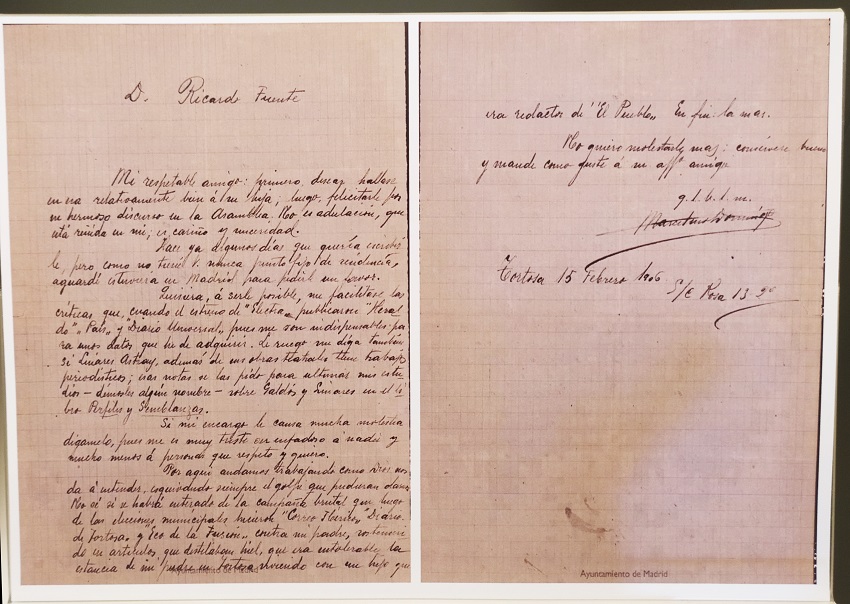 D. Ricardo Fuente
Mi respetable amigo: primero, desear hallase
en esa relativamente bien á su hija; luego, felicitarle por
su hermoso discurso en la Asamblea. No es adulación, que
está reñida en mi; es cariño y sinceridad.
Hace ya algunos días que quería escribir
le, pero como no tiene V. nunca punto fijo de residencia,
aguardé estuviera en Madrid para pedirle un favor.
Quisiera, á serle posible, me facilitase las
críticas que, cuando el estreno de "Electra" publicaron "Heral
do" "País" y "Diario Universal" pues me son indispensables pa
ra unos datos que he de adquirir. Le ruego me diga también
si Linares Astray, además de sus obras teatrales tiene trabajos
periodísticos; esas notas se las pido para ultimar mis estu
dios - démosles algún nombre - sobre Galdós y Linares en el li
bro Perfiles y Semblanzas.
Si mi encargo le causa mucha molestia
dígamelo, pues me es muy triste ser enfadoso á nadie y
mucho menos á personas que respeto y quiero.
Por aquí andamos trabajando como Dios nos
da á entender, esquivando siempre el golpe que pudieran darnos
No sé si se habrá enterado de la campaña brutal que luego
de las elecciones municipales hicieron "Correo Ibérico" "Diario
de Tortosa" y "Eco de la Fusión" contra mi padre, sostenien
do en artículos que destilaban hiel, que era intolerable la
estancia de mi padre en Tortosa viviendo con un hijo que
Ayuntamiento de Madrid
era redactor de "El Pueblo" En fin: la mar.
No quiero molestarle mas: consérvese bueno
y mande como guste á su aff. amigo
q. l. b. l. m.
Marcelino Domingo
Tortosa 15 Febrero 1906
S/C Rosa 13-2º
Ayuntamiento de Madrid